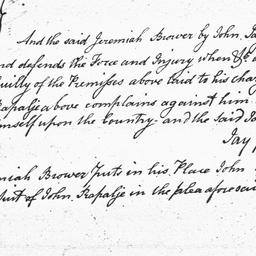 And the said Jeremiah Brower by John Ja
nd defends the Force and Injury when &c a
uilty of the Premisses above laid to his cha
Rapalje above complains against him
mself upon the Country and the said Jo
Jay
iah Brower Puts in his Place John
Suit of John Rapalje in the plea aforesaid